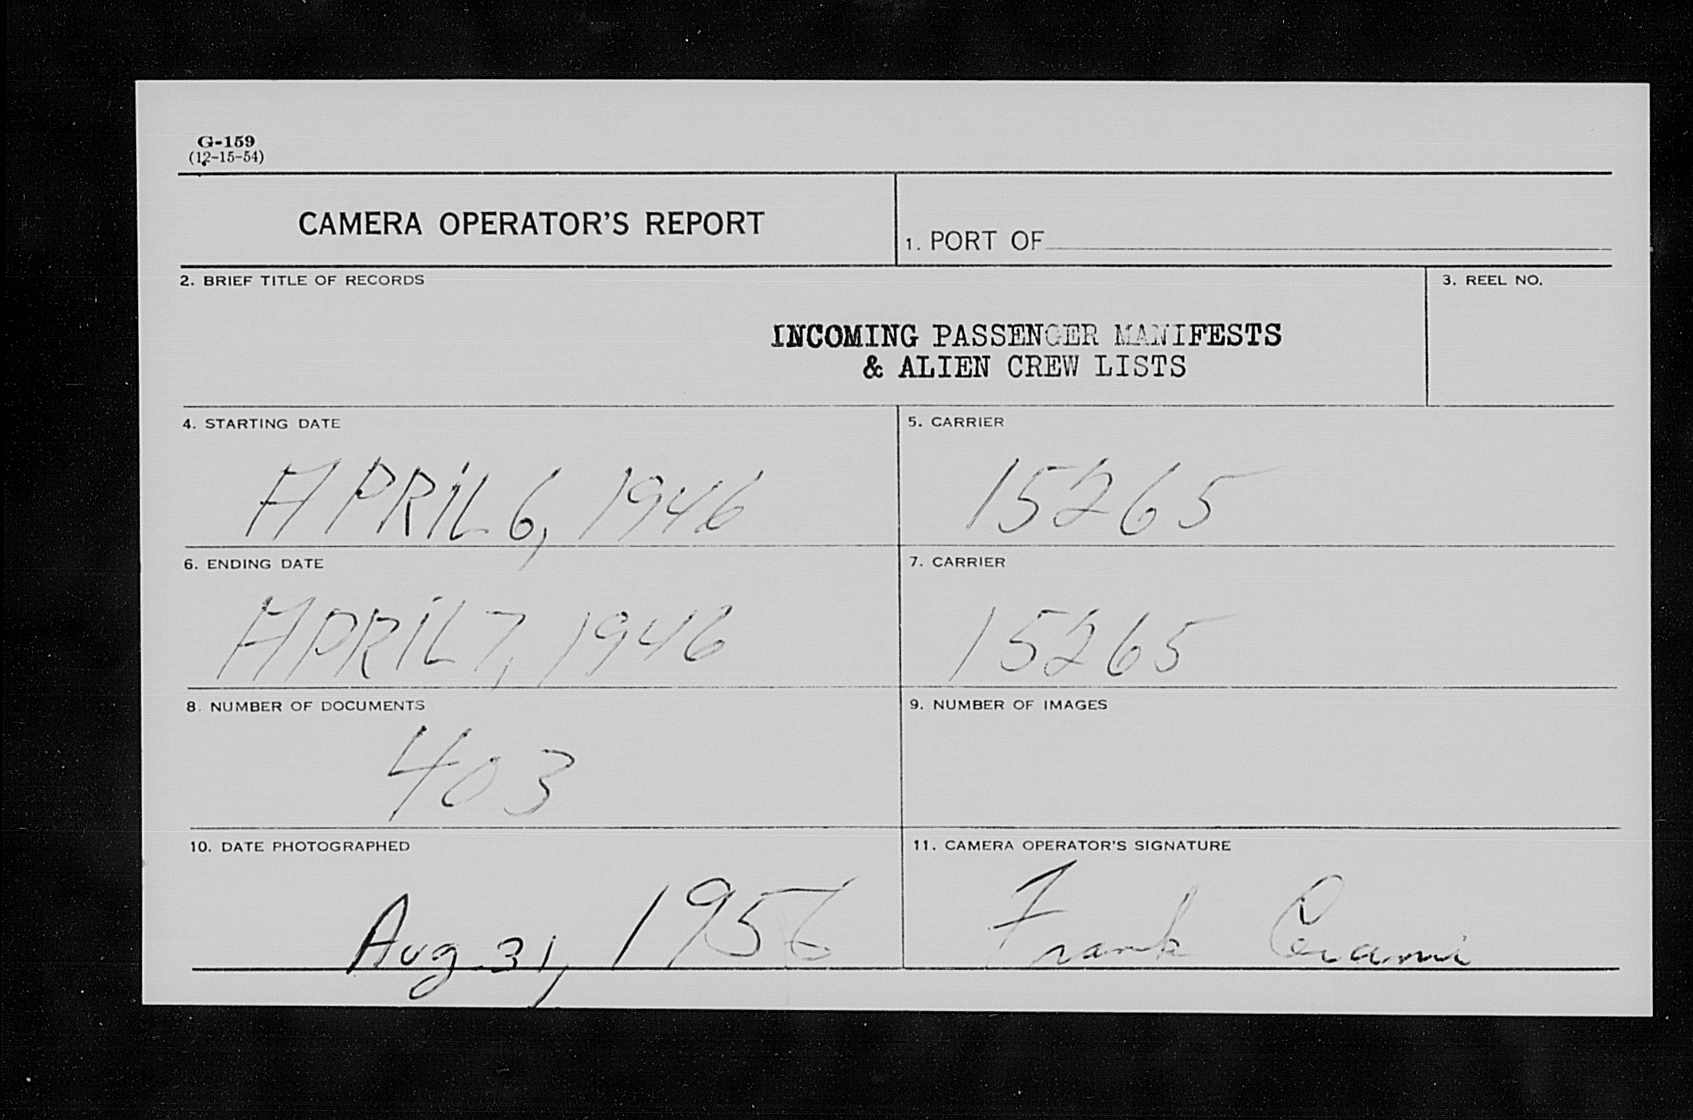 G-159
(12-15-54)
CAMERA OPERATOR'S REPORT
1. PORT OF
2. BRIEF TITLE OF RECORDS
3. REEL NO.
INCOMING PASSENGER MANIFESTS
& ALIEN CREW LISTS
4. STARTING DATE
5. CARRIER
APRIL 6, 1946
15265
6. ENDING DATE
7. CARRIER
APRIL 7, 1946
15265
8. NUMBER OF DOCUMENTS
9. NUMBER OF IMAGES
403
10. DATE PHOTOGRAPHED
11. CAMERA OPERATOR'S SIGNATURE
Aug 31, 1956
Frank